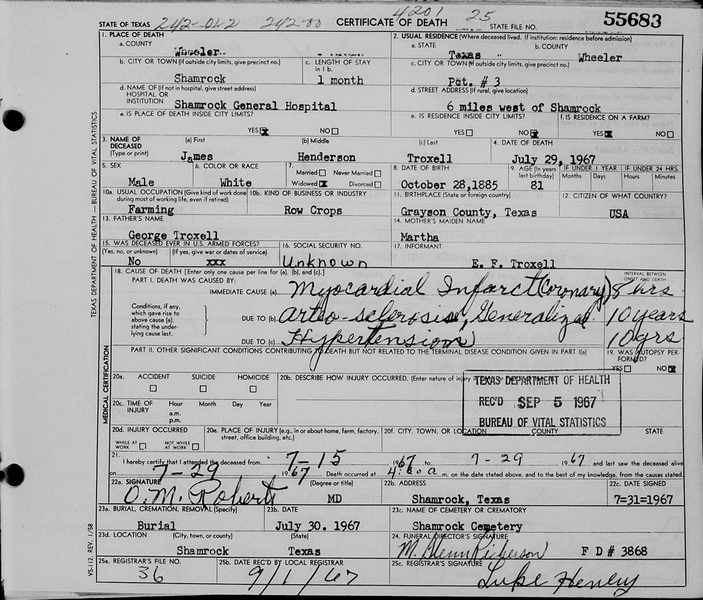 4201
STATE OF TEXAS 242-042 242-00 CERTIFICATE OF DEATH 25 STATE FILE NO. 55683
1. PLACE OF DEATH
a. COUNTY
Wheeler
2. USUAL RESIDENCE (Where deceased lived. If institution: residence before admission)
a. STATE b. COUNTY
Texas Wheeler
b. CITY OR TOWN (If outside city limits, give precinct no.) c. LENGTH OF STAY in 1 b.
Shamrock 1 month
c. CITY OR TOWN (If outside city limits, give precinct no.)
Pct. # 3
d. NAME OF (If not in hospital, give street address) HOSPITAL OR INSTITUTION
Shamrock General Hospital
d. STREET ADDRESS (If rural, give location)
6 miles west of Shamrock
e. IS PLACE OF DEATH INSIDE CITY LIMITS?
YES NO
e. IS RESIDENCE INSIDE CITY LIMITS? f. IS RESIDENCE ON A FARM?
YES NO YES NO
3. NAME OF DECEASED (Type or print) (a) First (b) Middle (c) Last 4. DATE OF DEATH
James Henderson Troxell July 29, 1967
5. SEX 6. COLOR OR RACE 7. Married Never Married Widowed Divorced
Male White
8. DATE OF BIRTH 9. AGE (In years last birthday) IF UNDER 1 YEAR IF UNDER 24 HRS.
Months Days Hours Minutes
October 28,1885 81
10a. USUAL OCCUPATION (Give kind of work done during most of working life, even if retired) 10b. KIND OF BUSINESS OR INDUSTRY
Farming Row Crops
11. BIRTHPLACE (State or foreign country) 12. CITIZEN OF WHAT COUNTRY?
Grayson County, Texas USA
13. FATHER'S NAME 14. MOTHER'S MAIDEN NAME
George Troxell Martha
15. WAS DECEASED EVER IN U.S. ARMED FORCES? 16. SOCIAL SECURITY NO. 17. INFORMANT
(Yes, no, or unknown) (If yes, give war or dates of service)
No xxx Unknown E. F. Troxell
18. CAUSE OF DEATH [Enter only one cause per line for (a), (b), and (c).] INTERVAL BETWEEN ONSET AND DEATH
PART I. DEATH WAS CAUSED BY:
IMMEDIATE CAUSE (a) Myocardial Infarct (Coronary) 8 hrs
Conditions, if any, which gave rise to above cause (a), stating the underlying cause last.
DUE TO (b) Arterio-sclerosis, Generalized 10 years
DUE TO (c) Hypertension 10 yrs
PART II. OTHER SIGNIFICANT CONDITIONS CONTRIBUTING TO DEATH BUT NOT RELATED TO THE TERMINAL DISEASE CONDITION GIVEN IN PART I(a) 19. WAS AUTOPSY PERFORMED?
YES NO
20a. ACCIDENT SUICIDE HOMICIDE
20b. DESCRIBE HOW INJURY OCCURRED. (Enter nature of injury
20c. TIME OF INJURY Hour Month Day Year
a.m.
p.m.
TEXAS DEPARTMENT OF HEALTH
REC'D SEP 5 1967
BUREAU OF VITAL STATISTICS
20d. INJURY OCCURRED
WHILE AT WORK NOT WHILE AT WORK
20e. PLACE OF INJURY (e.g., in or about home, farm, factory, street, office building, etc.)
20f. CITY, TOWN, OR LOCATION COUNTY STATE
21. I hereby certify that I attended the deceased from 7-15 1967 to 7-29 1967 and last saw the deceased alive
on 7-29 1967 Death occurred at 4:00 a m. on the date stated above, and to the best of my knowledge, from the causes stated.
22a. SIGNATURE (Degree or title) 22b. ADDRESS 22c. DATE SIGNED
O. M. Roberts MD Shamrock, Texas 7-31-1967
23a. BURIAL, CREMATION, REMOVAL (Specify) 23b. DATE 23c. NAME OF CEMETERY OR CREMATORY
Burial July 30. 1967 Shamrock Cemetery
23d. LOCATION (City, town, or county) (State) 24. FUNERAL DIRECTOR'S SIGNATURE
Shamrock Texas M. Glenn F D # 3868
25a. REGISTRAR'S FILE NO. 25b. DATE REC'D BY LOCAL REGISTRAR 25c. REGISTRAR'S SIGNATURE
36 9/1/67 Luke Henley
MEDICAL CERTIFICATION
TEXAS DEPARTMENT OF HEALTH — BUREAU OF VITAL STATISTICS
VS-112, REV. 1/58